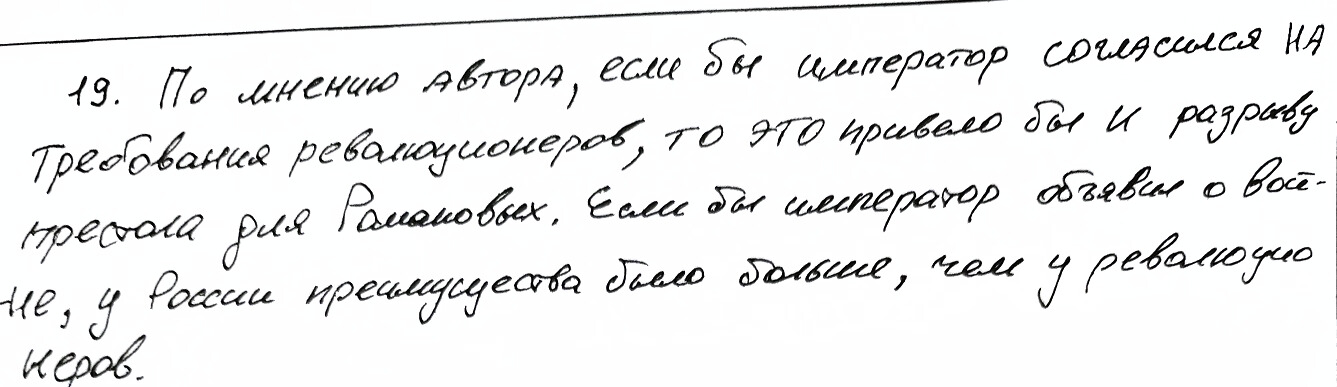 19. По мнению автора, если бы император согласился на
требования революционеров, то это привело бы к разрыву
престола для Романовых. Если бы император объявил о вой-
не, у России преимущества было больше, чем у революцио
неров.